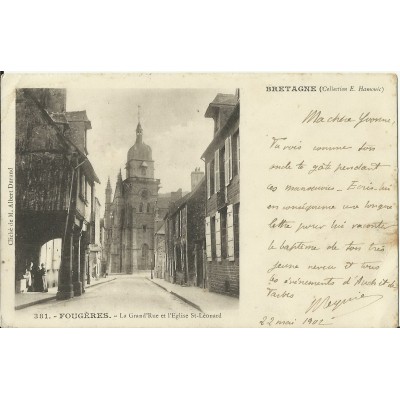 BRETAGNE (Collection E. Hamonic)
Ma chère Yvonne,
Tu vois comme ton
oncle te gâte pendant
ces manœuvres. Écris-lui
en conséquence une longue
lettre pour lui raconter
le baptême de ton très
jeune neveu et tous
les événements d'Auch et de
Tarbes
22 mai 1902
Cliché de M. Albert Durand
381. - FOUGÈRES. - La Grand'Rue et l'Eglise St-Léonard